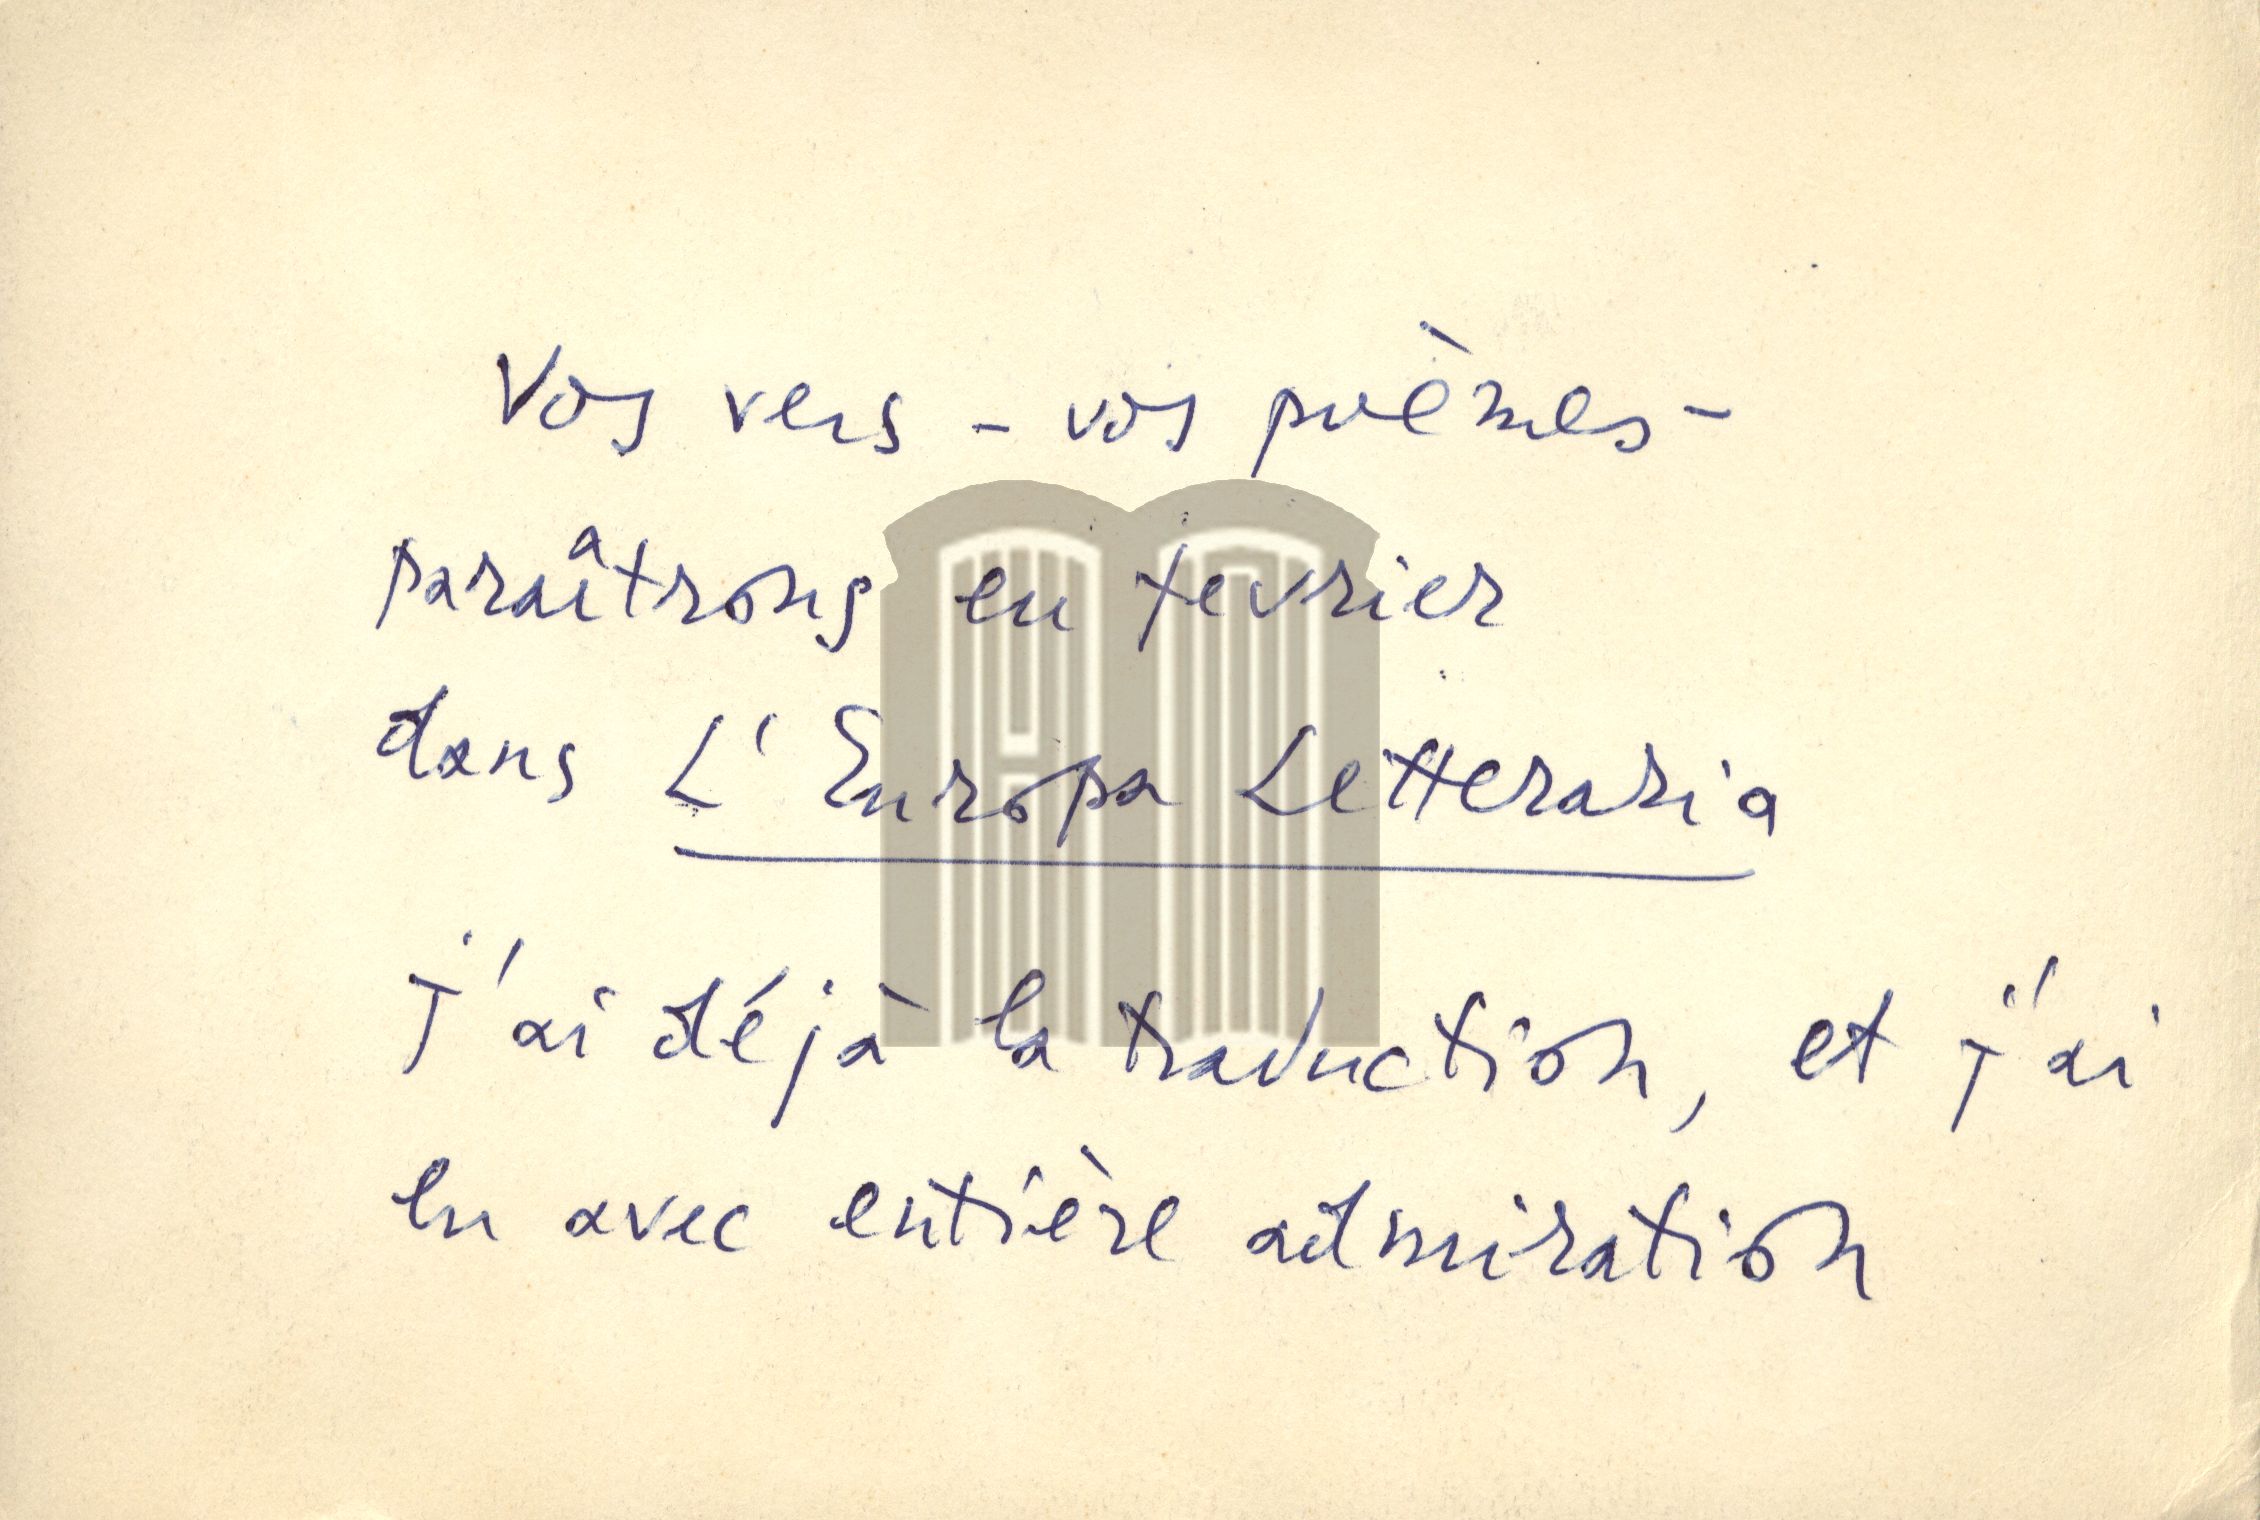 Vos vers - vos poèmes -
paraîtrons en fevrier
dans L'Europa Letteraria
j'ai déjà la traduction, et j'ai
lu avec entière admiration